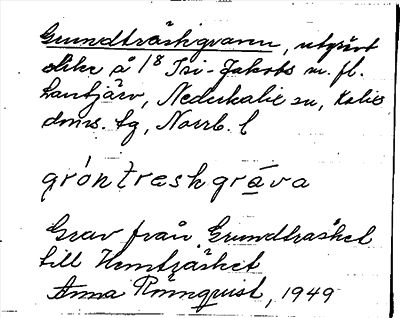 Grundträskgraven, utgrävt
dike å 1/8 Isi-Jakobs m. fl.
Lantjärv, Nederkalix sn, Kalix
doms. tg, Norrb. l
gròntreskgrava
Grav från Grundträsket
till Hemträsket
Anna Rönnquist, 1949